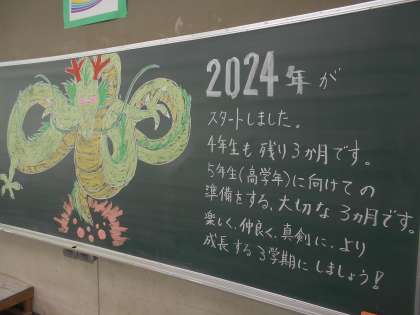 2024年が
スタートしました。
4年生も残り3か月です。
5年生(高学年)に向けての
準備をする、大切な3ヵ月です。
楽しく、仲良く、真剣に、より
成長する3学期にしましょう!